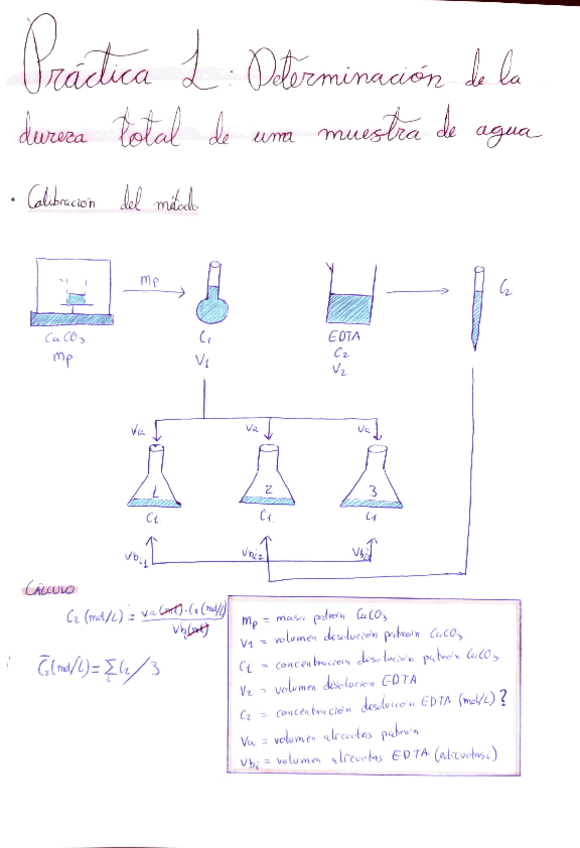 Práctica 1: Determinación de la
dureza total de una muestra de agua
• Calibración del método
mp
CaCO3
mp
C1
V1
EDTA
C2
V2
C2
Va Va Va
1 2 3
C1 C1 C1
Vbi1 Vbi2 Vbi3
CÁLCULO
C2 (mol/L) = Va (ml) · C1 (mol/L) / Vbi (ml)
C̅2 (mol/L) = Σ C2 / 3
mp = masa patrón CaCO3
V1 = volumen disolución patrón CaCO3
C1 = concentración disolución patrón CaCO3
V2 = volumen disolución EDTA
C2 = concentración disolución EDTA (mol/L) ?
Va = volumen alícuotas patrón
Vbi = volumen alícuotas EDTA (alícuotas i)